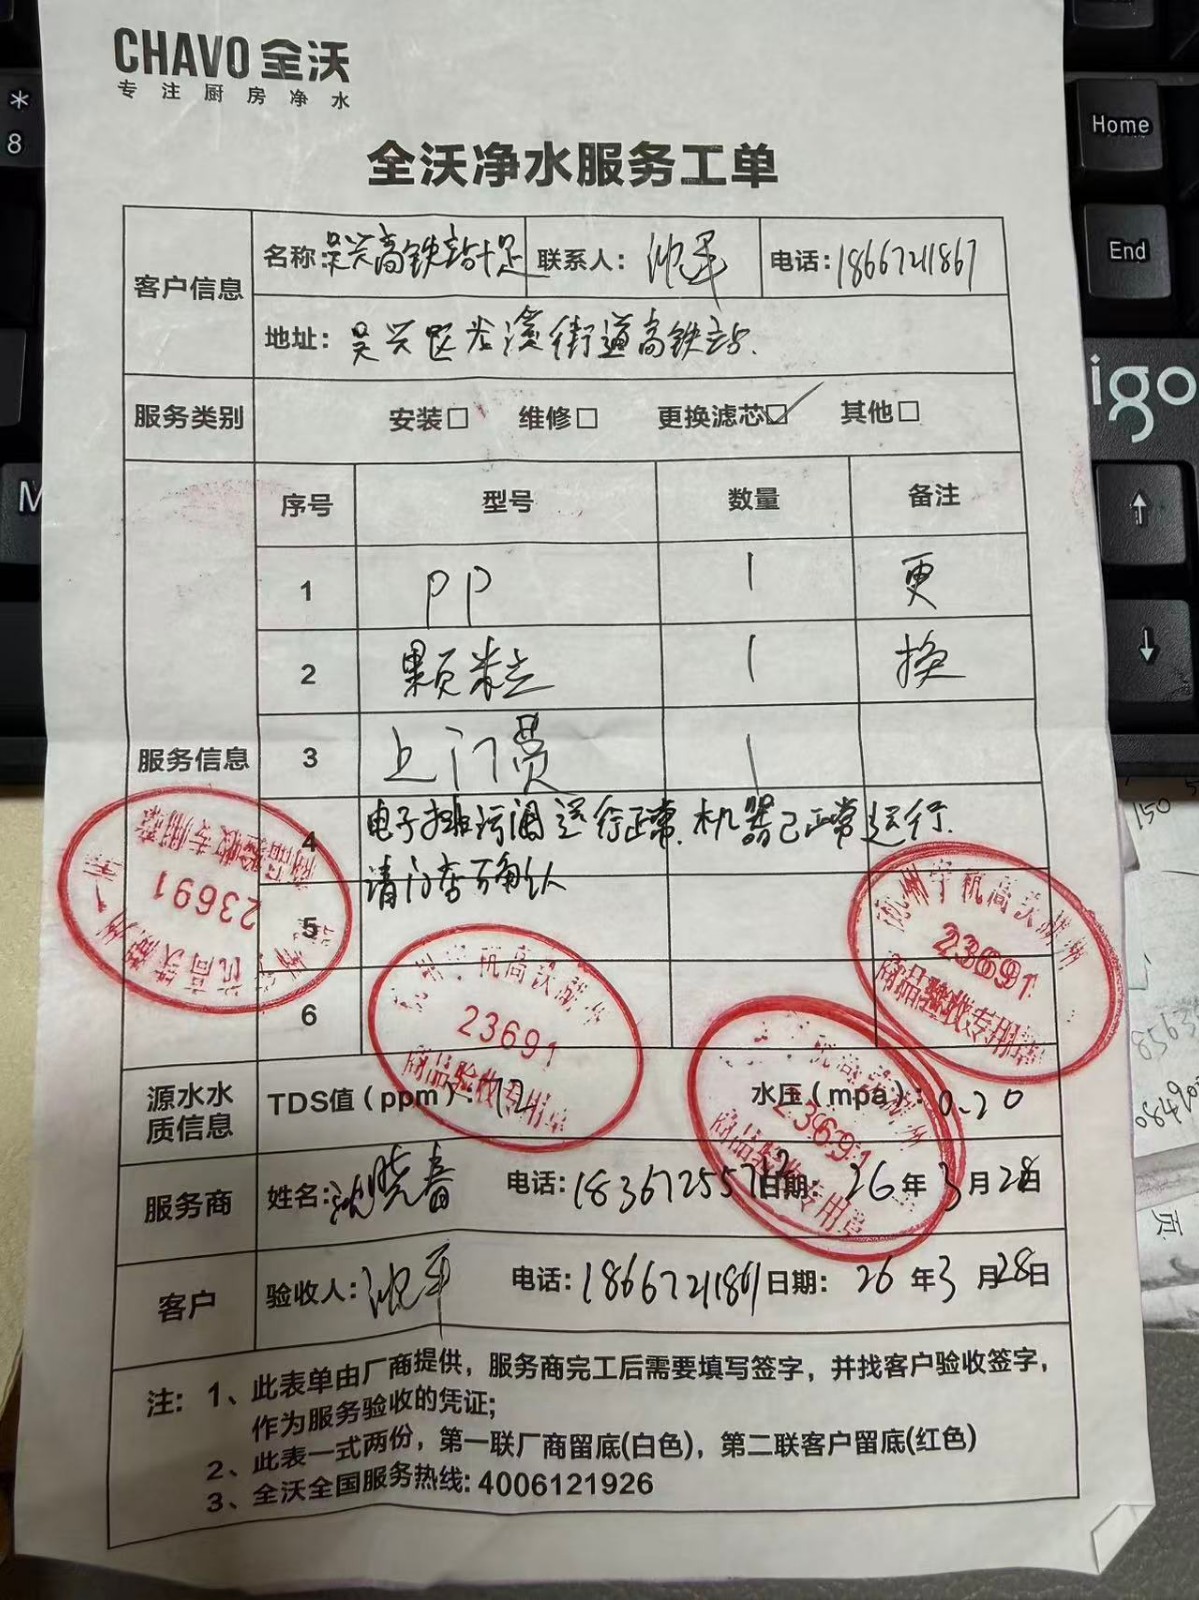 CHAVO 全沃
专注厨房净水
全沃净水服务工单
客户信息 名称:吴兴高铁站十足 联系人: 电话:18667211867
地址: 吴兴区 街道高铁站.
服务类别 安装□ 维修□ 更换滤芯☑ 其他□
服务信息 序号 型号 数量 备注
1 PP 1 更
2 颗粒 1 换
3 上门费 1
4 电子排污阀运行正常.机器已正常运行.
请门店 确认
5
6
23691
商品验收专用章
23691
商品验收专用章
23691
商品验收专用章
23691
商品验收专用章
源水水质信息 TDS值(ppm): 72 水压(mpa): 0.20
服务商 姓名:沈晓春 电话: 日期: 26年3月28日
客户 验收人: 电话:18667211867 日期: 26年3月28日
注: 1、此表单由厂商提供，服务商完工后需要填写签字，并找客户验收签字，
作为服务验收的凭证;
2、此表一式两份，第一联厂商留底(白色)，第二联客户留底(红色)
3、全沃全国服务热线: 4006121926
*
8
M
Home
End
igo
↑
↓
150
页